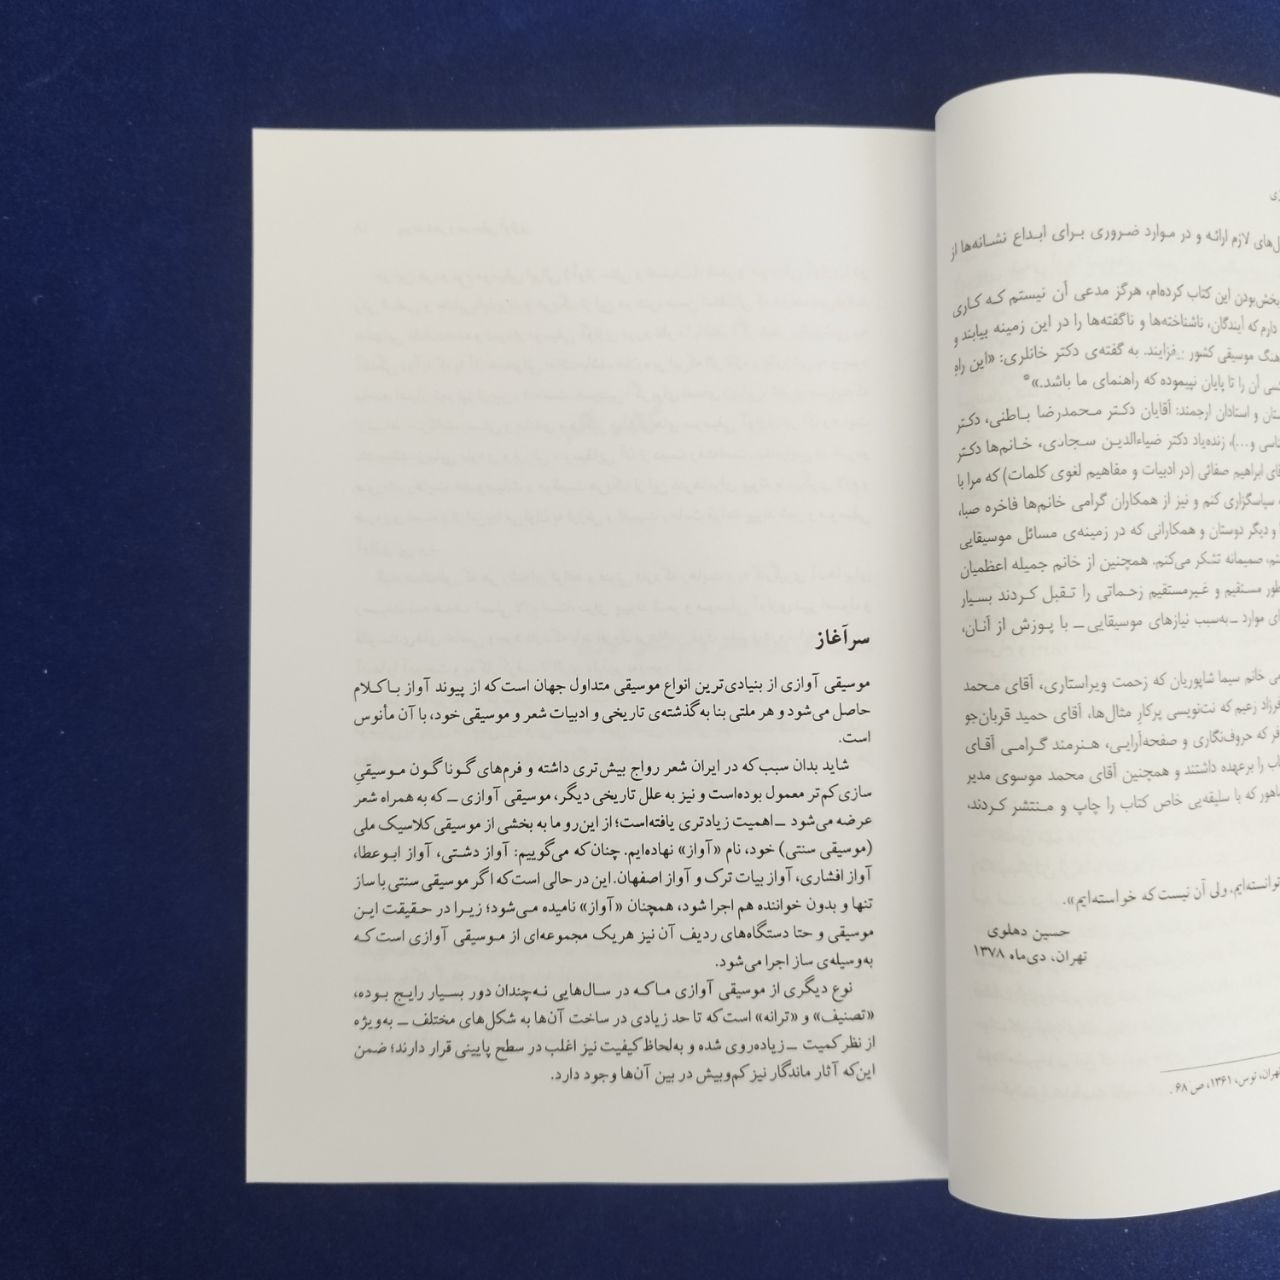 ل‌های لازم ارائه و در موارد ضروری برای ابداع نشانه‌ها از
بخش‌بودن این کتاب کرده‌ام، هرگز مدعی آن نیستم که کاری
دارم که آیندگان، ناشناخته‌ها و ناگفته‌ها را در این زمینه بیابند و
هنگ موسیقی کشور بیفزایند. به گفته‌ی دکتر خانلری: «این راهِ
کسی آن را تا پایان نپیموده که راهنمای ما باشد.»*
ستان و استادان ارجمند: آقایان دکتر محمدرضا باطنی، دکتر
ناسی و...)، زنده‌یاد دکتر ضیاءالدین سجادی، خانم‌ها دکتر
قای ابراهیم صفائی (در ادبیات و مفاهیم لغوی کلمات) که مرا با
سپاسگزاری کنم و نیز از همکاران گرامی خانم‌ها فاخره صبا،
و دیگر دوستان و همکارانی که در زمینه‌ی مسائل موسیقایی
صمیمانه تشکر می‌کنم. همچنین از خانم جمیله اعظمیان
طور مستقیم و غیرمستقیم زحماتی را تقبل کردند بسیار
ای موارد ـ به‌سبب نیازهای موسیقایی ـ با پوزش از آنان،
می خانم سیما شاپوریان که زحمت ویراستاری، آقای محمد
فرزاد زعیم که نت‌نویسی پرکارِ مثال‌ها، آقای حمید قربان‌جو
فر که حروف‌نگاری و صفحه‌آرایی، هنرمند گرامی آقای
اب را برعهده داشتند و همچنین آقای محمد موسوی مدیر
ماهور که با سلیقه‌یی خاص کتاب را چاپ و منتشر کردند،
توانسته‌ایم، ولی آن نیست که خواسته‌ایم».
حسین دهلوی
تهران، دی‌ماه ۱۳۷۸
تهران، توس، ۱۳۶۱، ص ۶۸.
سرآغاز
موسیقی آوازی از بنیادی‌ترین انواع موسیقی متداول جهان است‌که از پیوند آواز باکلام
حاصل می‌شود و هر ملتی بنا به‌گذشته‌ی تاریخی و ادبیات شعر و موسیقی خود، با آن مأنوس
است.
شاید بدان سبب‌که در ایران شعر رواج بیش‌تری داشته و فرم‌های گوناگون موسیقیِ
سازی‌کم‌تر معمول بوده‌است و نیز به علل تاریخی دیگر، موسیقی آوازی ـ که به همراه شعر
عرضه می‌شود ـ اهمیت زیادتری یافته‌است؛ از این‌رو ما به بخشی از موسیقی‌کلاسیک ملی
(موسیقی سنتی) خود، نام «آواز» نهاده‌ایم. چنان‌که می‌گوییم: آواز دشتی، آواز ابوعطا،
آواز افشاری، آواز بیات ترک و آواز اصفهان. این در حالی است‌که اگر موسیقی سنتی با ساز
تنها و بدون خواننده هم اجرا شود، همچنان «آواز» نامیده می‌شود؛ زیرا در حقیقت این
موسیقی و حتا دستگاه‌های ردیف آن نیز هریک مجموعه‌ای از موسیقی آوازی است‌که
به‌وسیله‌ی ساز اجرا می‌شود.
نوع دیگری از موسیقی آوازی ماکه در سال‌هایی نه‌چندان دور بسیار رایج بوده،
«تصنیف» و «ترانه» است‌که تا حد زیادی در ساخت آن‌ها به شکل‌های مختلف ـ به‌ویژه
از نظر کمیت ـ زیاده‌روی شده و به‌لحاظ‌کیفیت نیز اغلب در سطح پایینی قرار دارند؛ ضمن
این‌که آثار ماندگار نیز کم‌وبیش در بین آن‌ها وجود دارد.